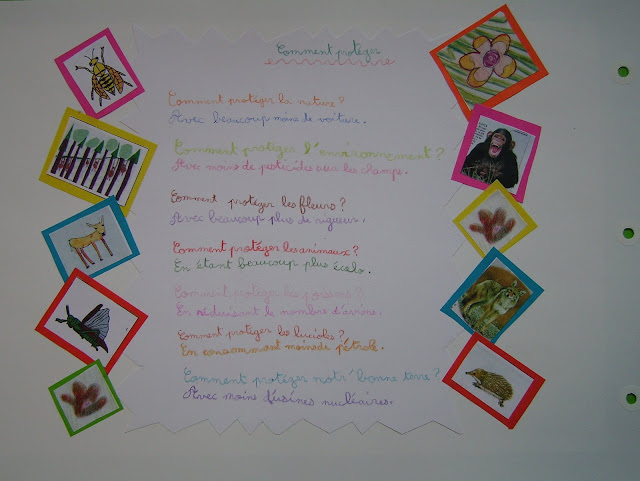 Comment protéger
Comment protéger la nature ?
Avec beaucoup moins de voiture.
Comment protéger l'environnement ?
Avec moins de pesticides sur les champs.
Comment protéger les fleurs ?
Avec beaucoup plus de rigueur.
Comment protéger les animaux ?
En étant beaucoup plus écolo.
Comment protéger les poissons ?
En réduisant le nombre d'avions.
Comment protéger les lucioles ?
En consommant moins de pétrole.
Comment protéger notr' bonne terre ?
Avec moins d'usines nucléaires.